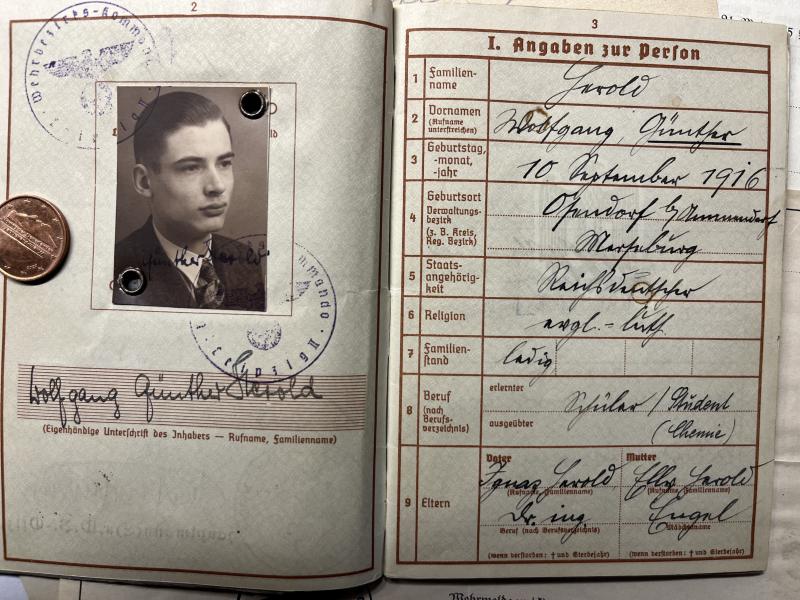 2
Wehrbezirks-Kommando
Leipzig I
Günther Herold
Kommando
Leipzig II
Wolfgang Günther Herold
(Eigenhändige Unterschrift des Inhabers — Rufname, Familienname)
3
I. Angaben zur Person
1 Familien-
name
Herold
2 Vornamen
(Rufname
unterstreichen)
Wolfgang, Günther
3 Geburtstag,
-monat,
-jahr
10 September 1916
4 Geburtsort
Verwaltungs-
bezirk
(z. B. Kreis,
Reg. Bezirk)
Osendorf b/Ammendorf
Merseburg
5 Staats-
angehörig-
keit
Reichsdeutscher
6 Religion
evgl.-luth.
7 Familien-
stand
ledig
8 Beruf
(nach
Berufs-
verzeichnis)
erlernter
ausgeübter
Schüler / Student
(Chemie)
9 Eltern
Vater
Ignaz Herold
(Rufname, Familienname)
Dr. ing.
Beruf (nach Berufsverzeichnis)
(wenn verstorben: † und Sterbejahr)
Mutter
Elly Herold
(Rufname, Familienname)
Engel
Mädchenname
(wenn verstorben: † und Sterbejahr)